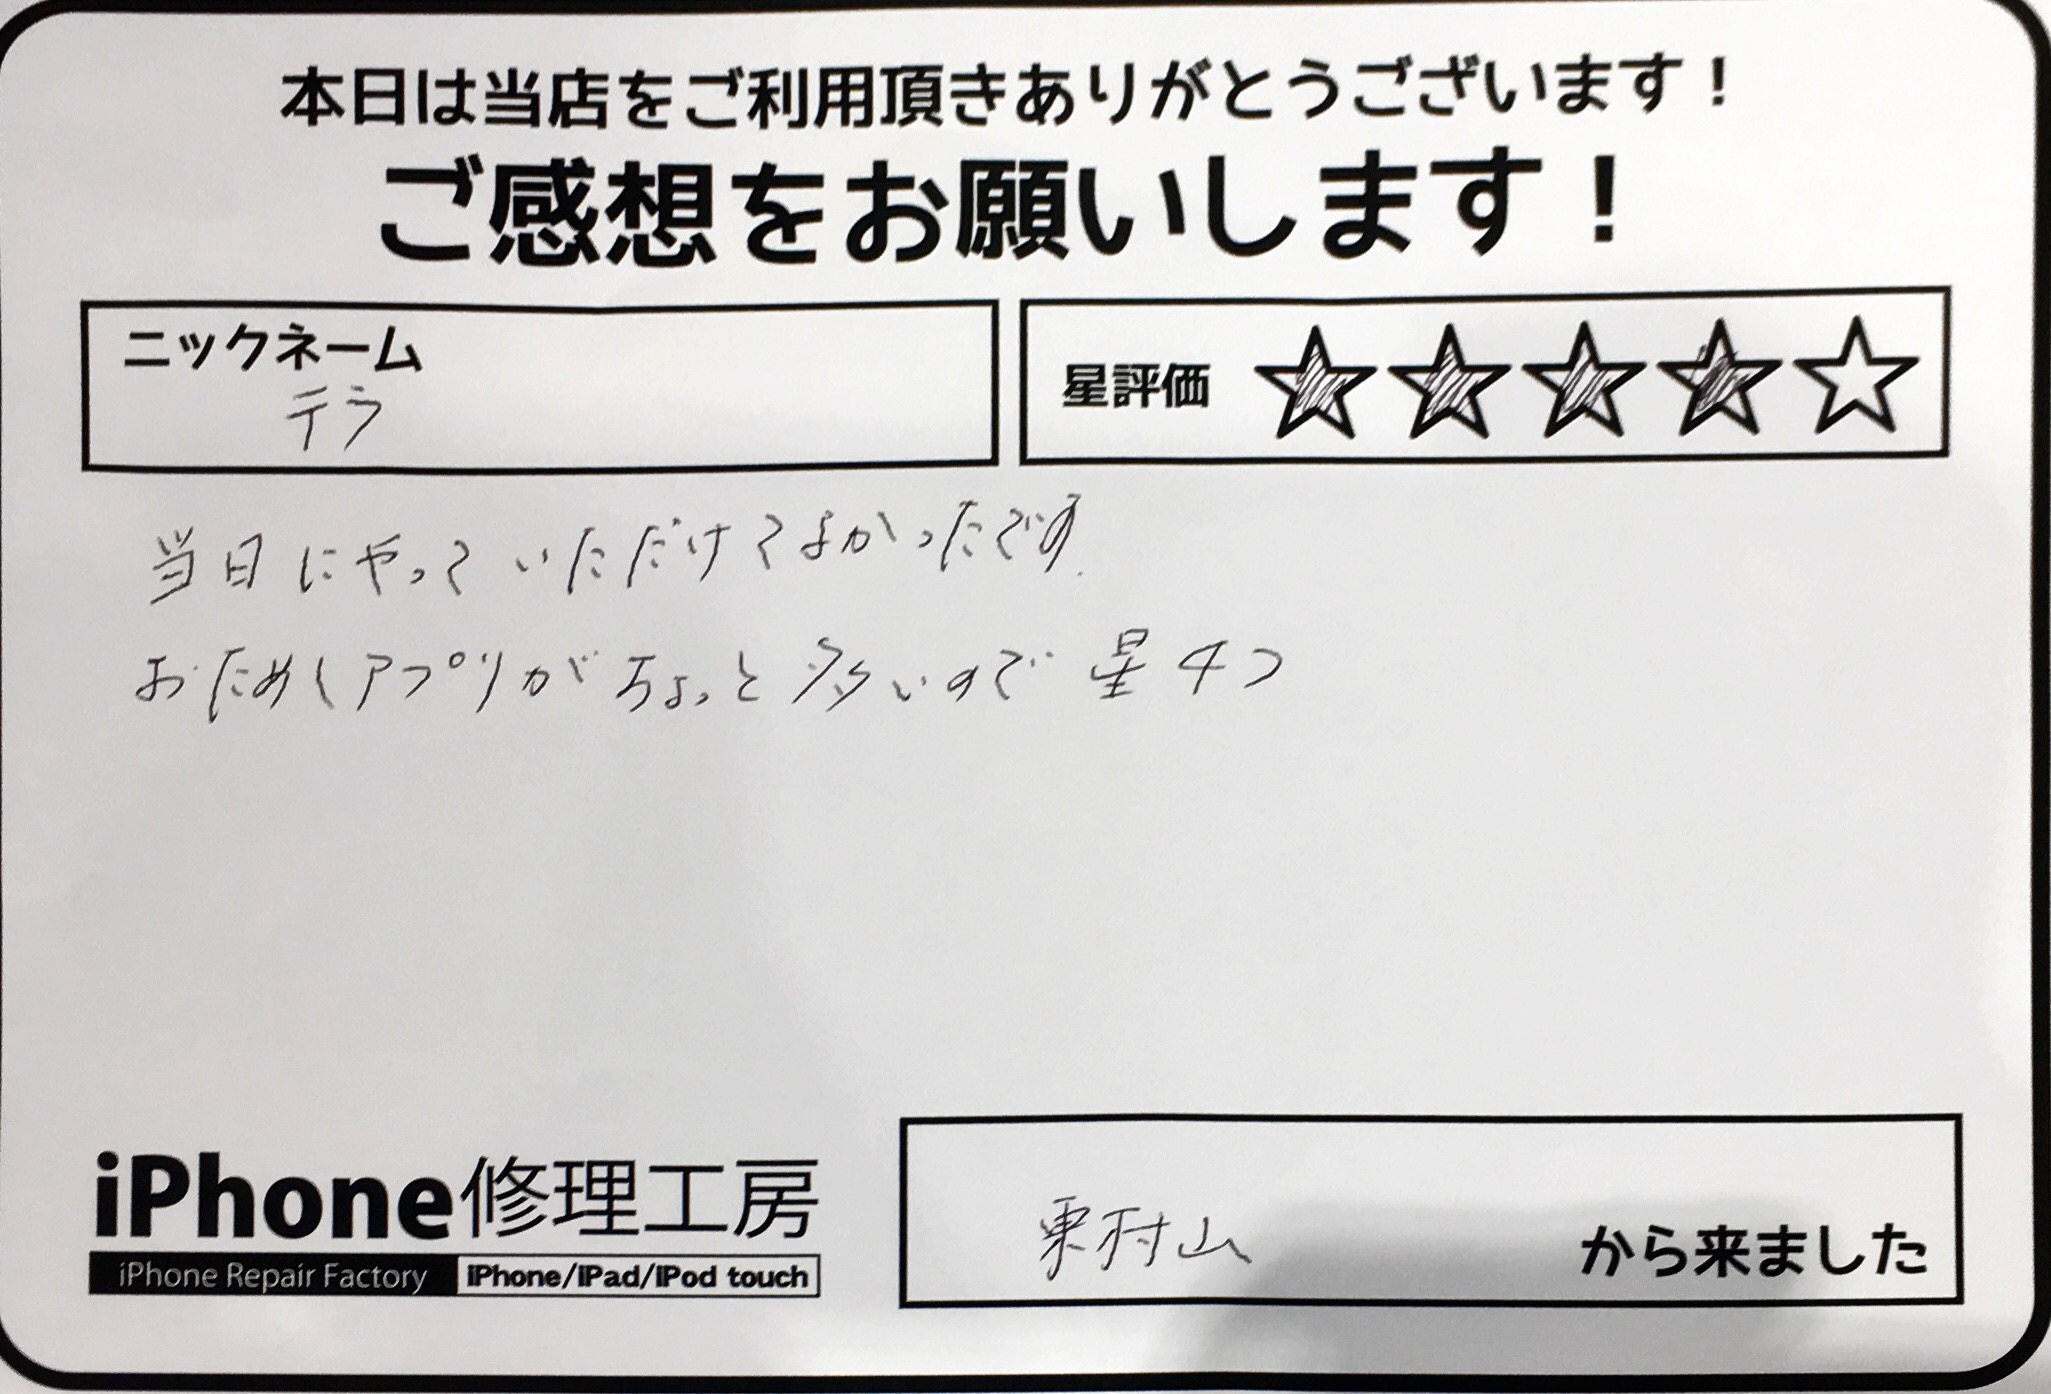 本日は当店をご利用頂きありがとうございます！
ご感想をお願いします！
ニックネーム
テラ
星評価
当日にやっていただけてよかったです.
おためしアプリがちょっと多いので 星4つ
iPhone修理工房
iPhone Repair Factory iPhone/iPad/iPod touch
東村山 から来ました